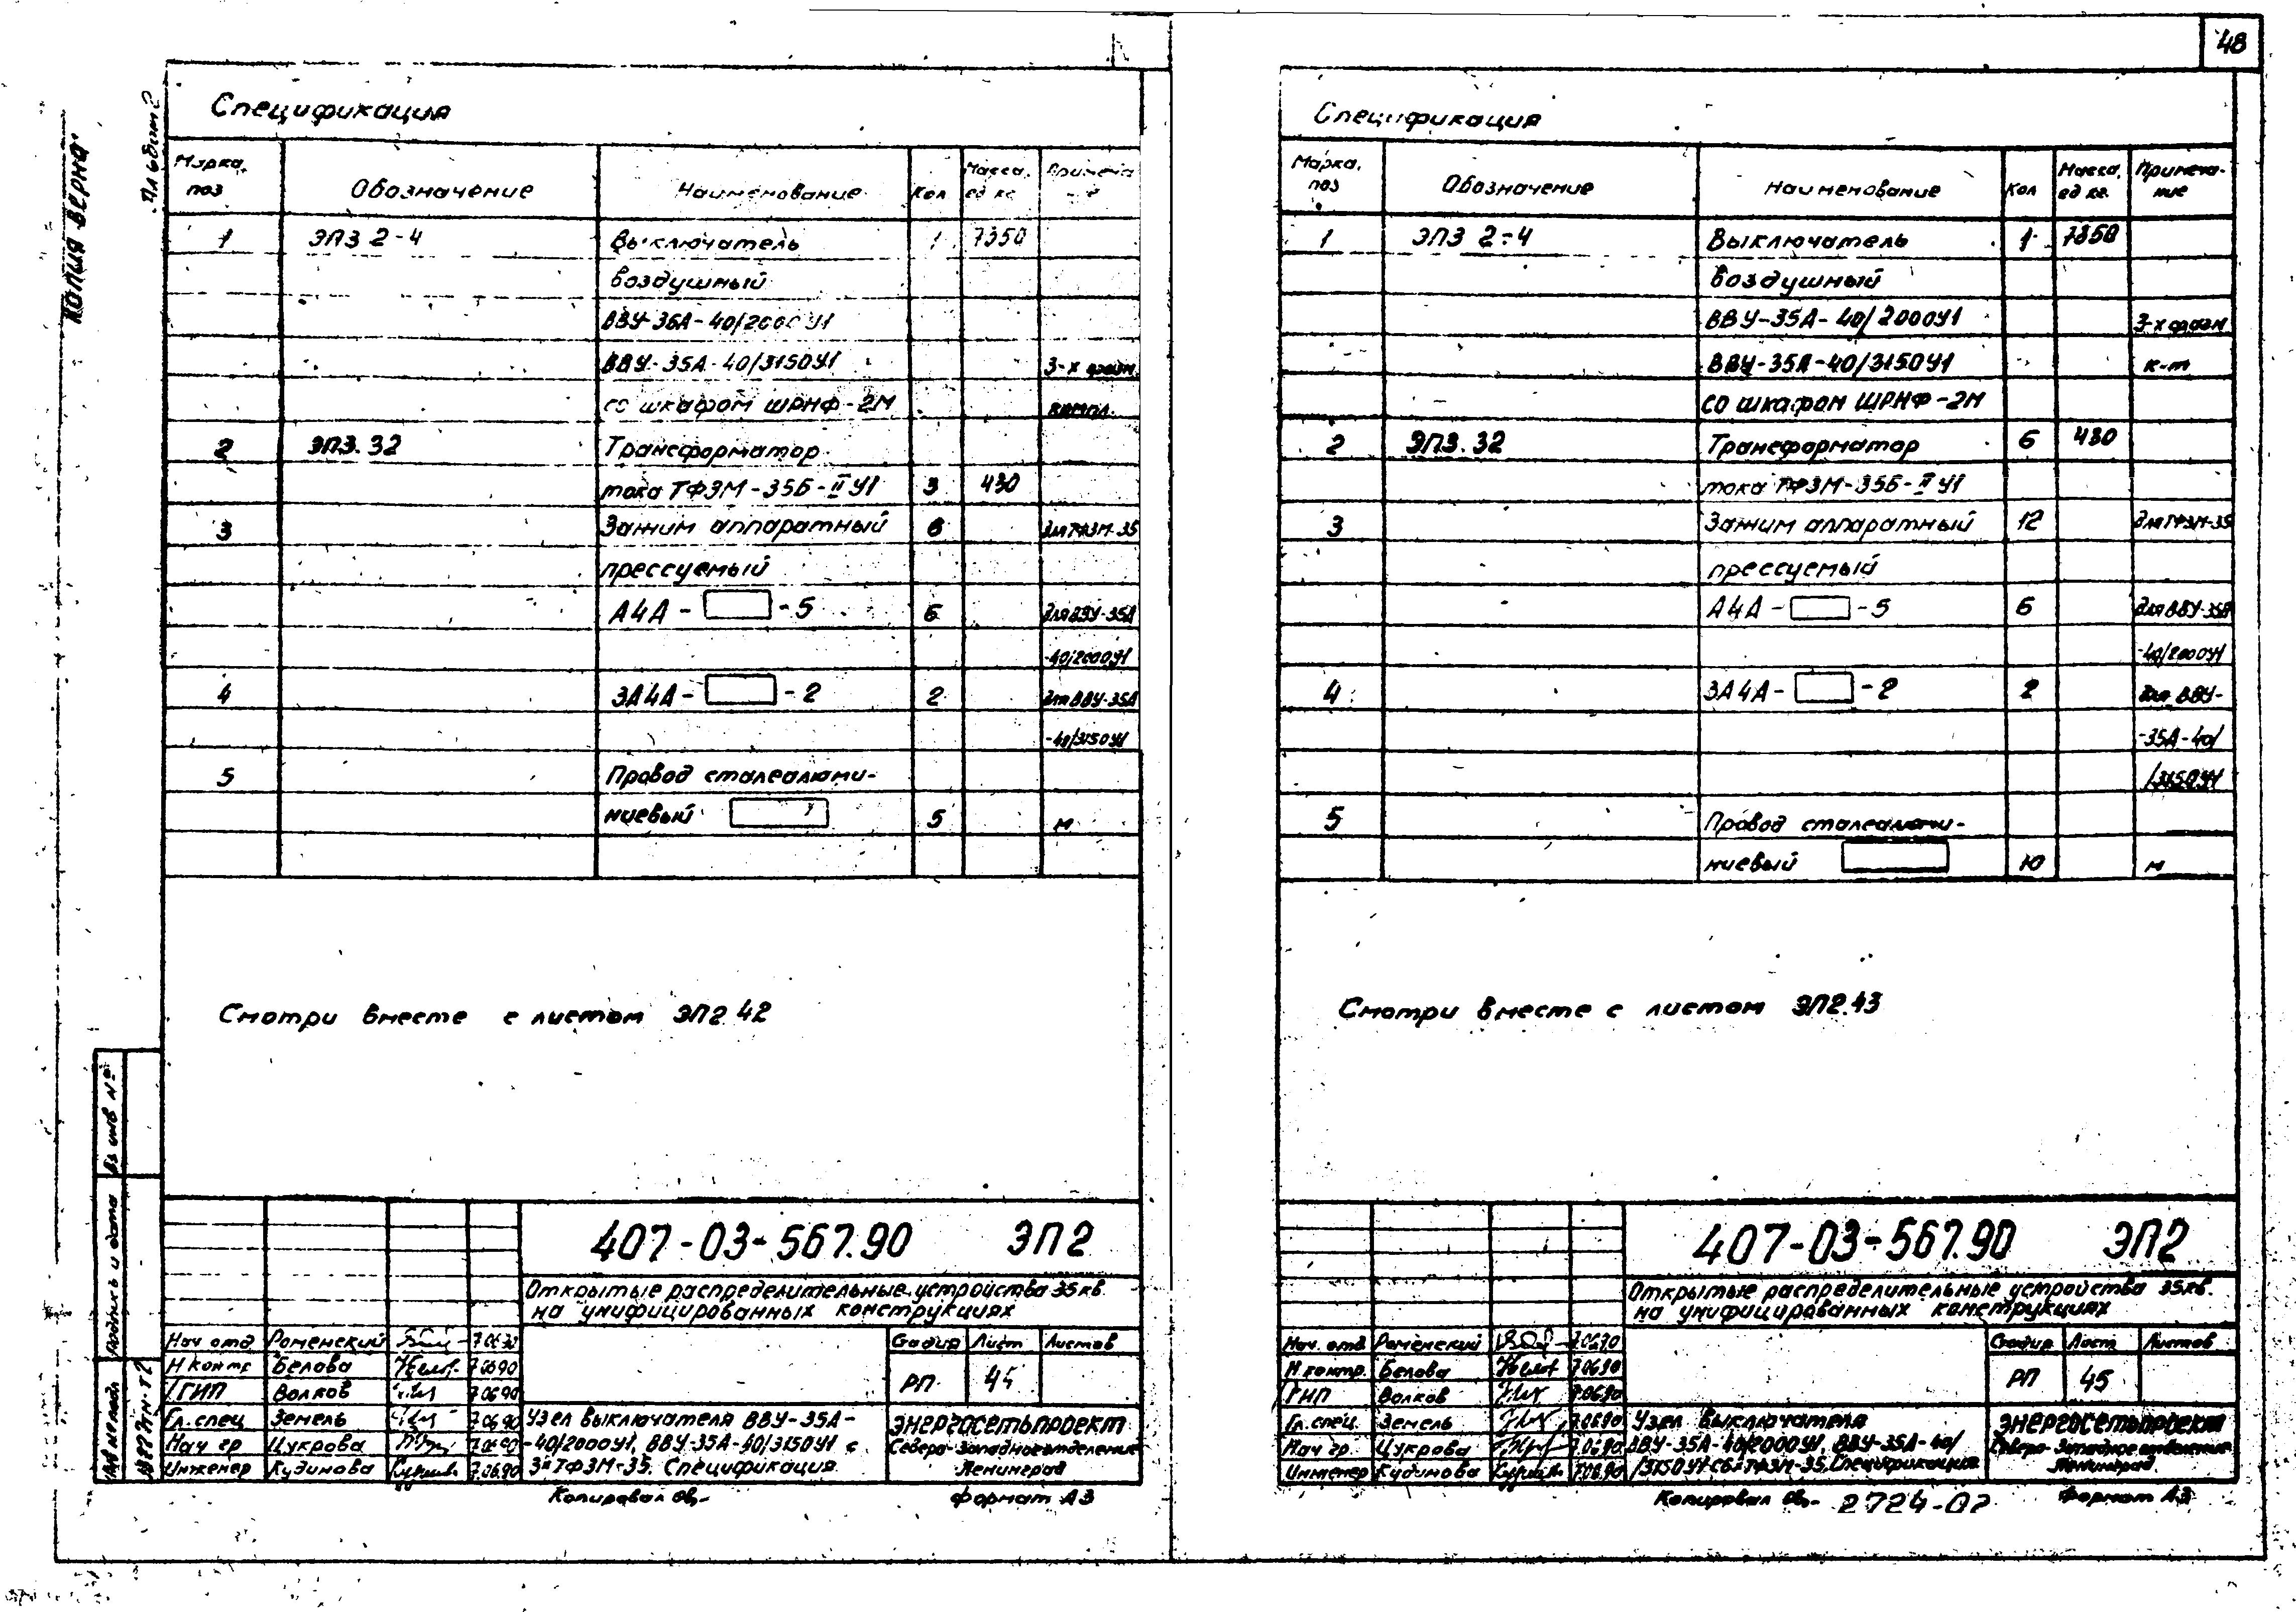 48
Копия верна
Альбом 2
Спецификация
Марка, поз | Обозначение | Наименование | Кол | Масса, ед кг
1 ЭПЗ 2-4 Выключатель 1 7350
воздушный
ВВУ-35А-40/2000У1
ВВУ-35А-40/3150У1 3-х фазн.
со шкафом ШРНФ-2М компл.
2 ЭПЗ.32 Трансформатор
тока ТФЗМ-35Б-II У1 3 430
3 Зажим аппаратный 6 для ТФЗМ-35
прессуемый
А4А- -5 6 для ВВУ-35А
-40/2000У1
4 3А4А- -2 2 для ВВУ-35А
-40/3150У1
5 Провод сталеалюми-
ниевый 5 м
Смотри вместе с листом ЭП2 42
Вз инв №
Подпись и дата
Инв № подл
407-03-567.90 ЭП2
Открытые распределительные устройства 35 кв.
на унифицированных конструкциях
Нач отд Роменский 7.06.90
Н контр Белова 7.06.90
ГИП Волков 7.06.90
Гл. спец Земель 7.06.90
Нач гр Цукрова 7.06.90
Инженер Кудинова 7.06.90
Стадия Лист Листов
РП 44
Узел выключателя ВВУ-35А-
-40/2000У1, ВВУ-35А-40/3150У1 с
3мя ТФЗМ-35. Спецификация
Энергосетьпроект
Северо-Западное отделение
Ленинград
Копировал Формат А3
Спецификация
Марка, поз | Обозначение | Наименование | Кол | Масса, ед кг. | Примеча-ние
1 ЭПЗ 2-4 Выключатель 1 7350
воздушный
ВВУ-35А-40/2000У1 3-х фазн
ВВУ-35А-40/3150У1 к-т
со шкафом ШРНФ-2М
2 ЭПЗ.32 Трансформатор 6 430
тока ТФЗМ-35Б-II У1
3 Зажим аппаратный 12 для ТФЗМ-35
прессуемый
А4А- -5 6 для ВВУ-35А
-40/2000У1
4 3А4А- -2 2 для ВВУ-
-35А-40/
/3150У1
5 Провод сталеалюми-
ниевый 10 м
Смотри вместе с листом ЭП2.43
407-03-567.90 ЭП2
Открытые распределительные устройства 35кв.
на унифицированных конструкциях
Нач. отд Роменский 7.06.90
Н контр. Белова 7.06.90
ГИП Волков 7.06.90
Гл. спец. Земель 7.06.90
Нач гр. Цукрова 7.06.90
Инженер Кудинова 7.06.90
Стадия Лист Листов
РП 45
Узел выключателя
ВВУ-35А-40/2000У1, ВВУ-35А-40/
/3150У1 с 6ю ТФЗМ-35. Спецификация
Энергосетьпроект
Северо-Западное отделение
Ленинград
Копировал 2724-02 Формат А3